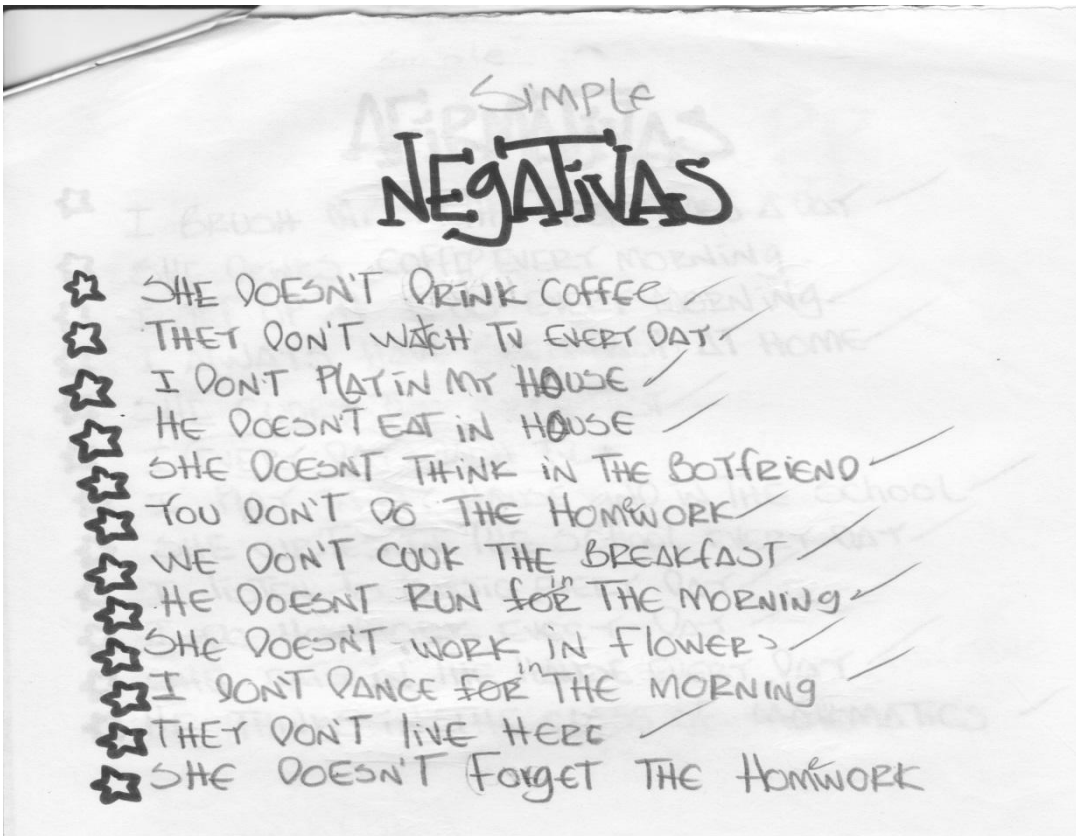 SIMPLE
NEGATIVAS
SHE DOESN'T DRINK COFFEE
THEY DON'T WATCH TV EVERY DAY
I DON'T PLAY IN MY HOUSE
HE DOESN'T EAT IN HOUSE
SHE DOESNT THINK IN THE BOYFRIEND
YOU DON'T DO THE HOMEWORK
WE DON'T COOK THE BREAKFAST
HE DOESNT RUN for in THE MORNING
SHE DOESNT WORK IN FLOWERS
I DONT DANCE FOR in THE MORNING
THEY DON'T LIVE HERE
SHE DOESN'T Forget THE HOMEWORK